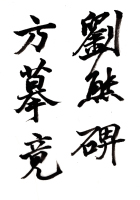 劉熊碑
方摹竟